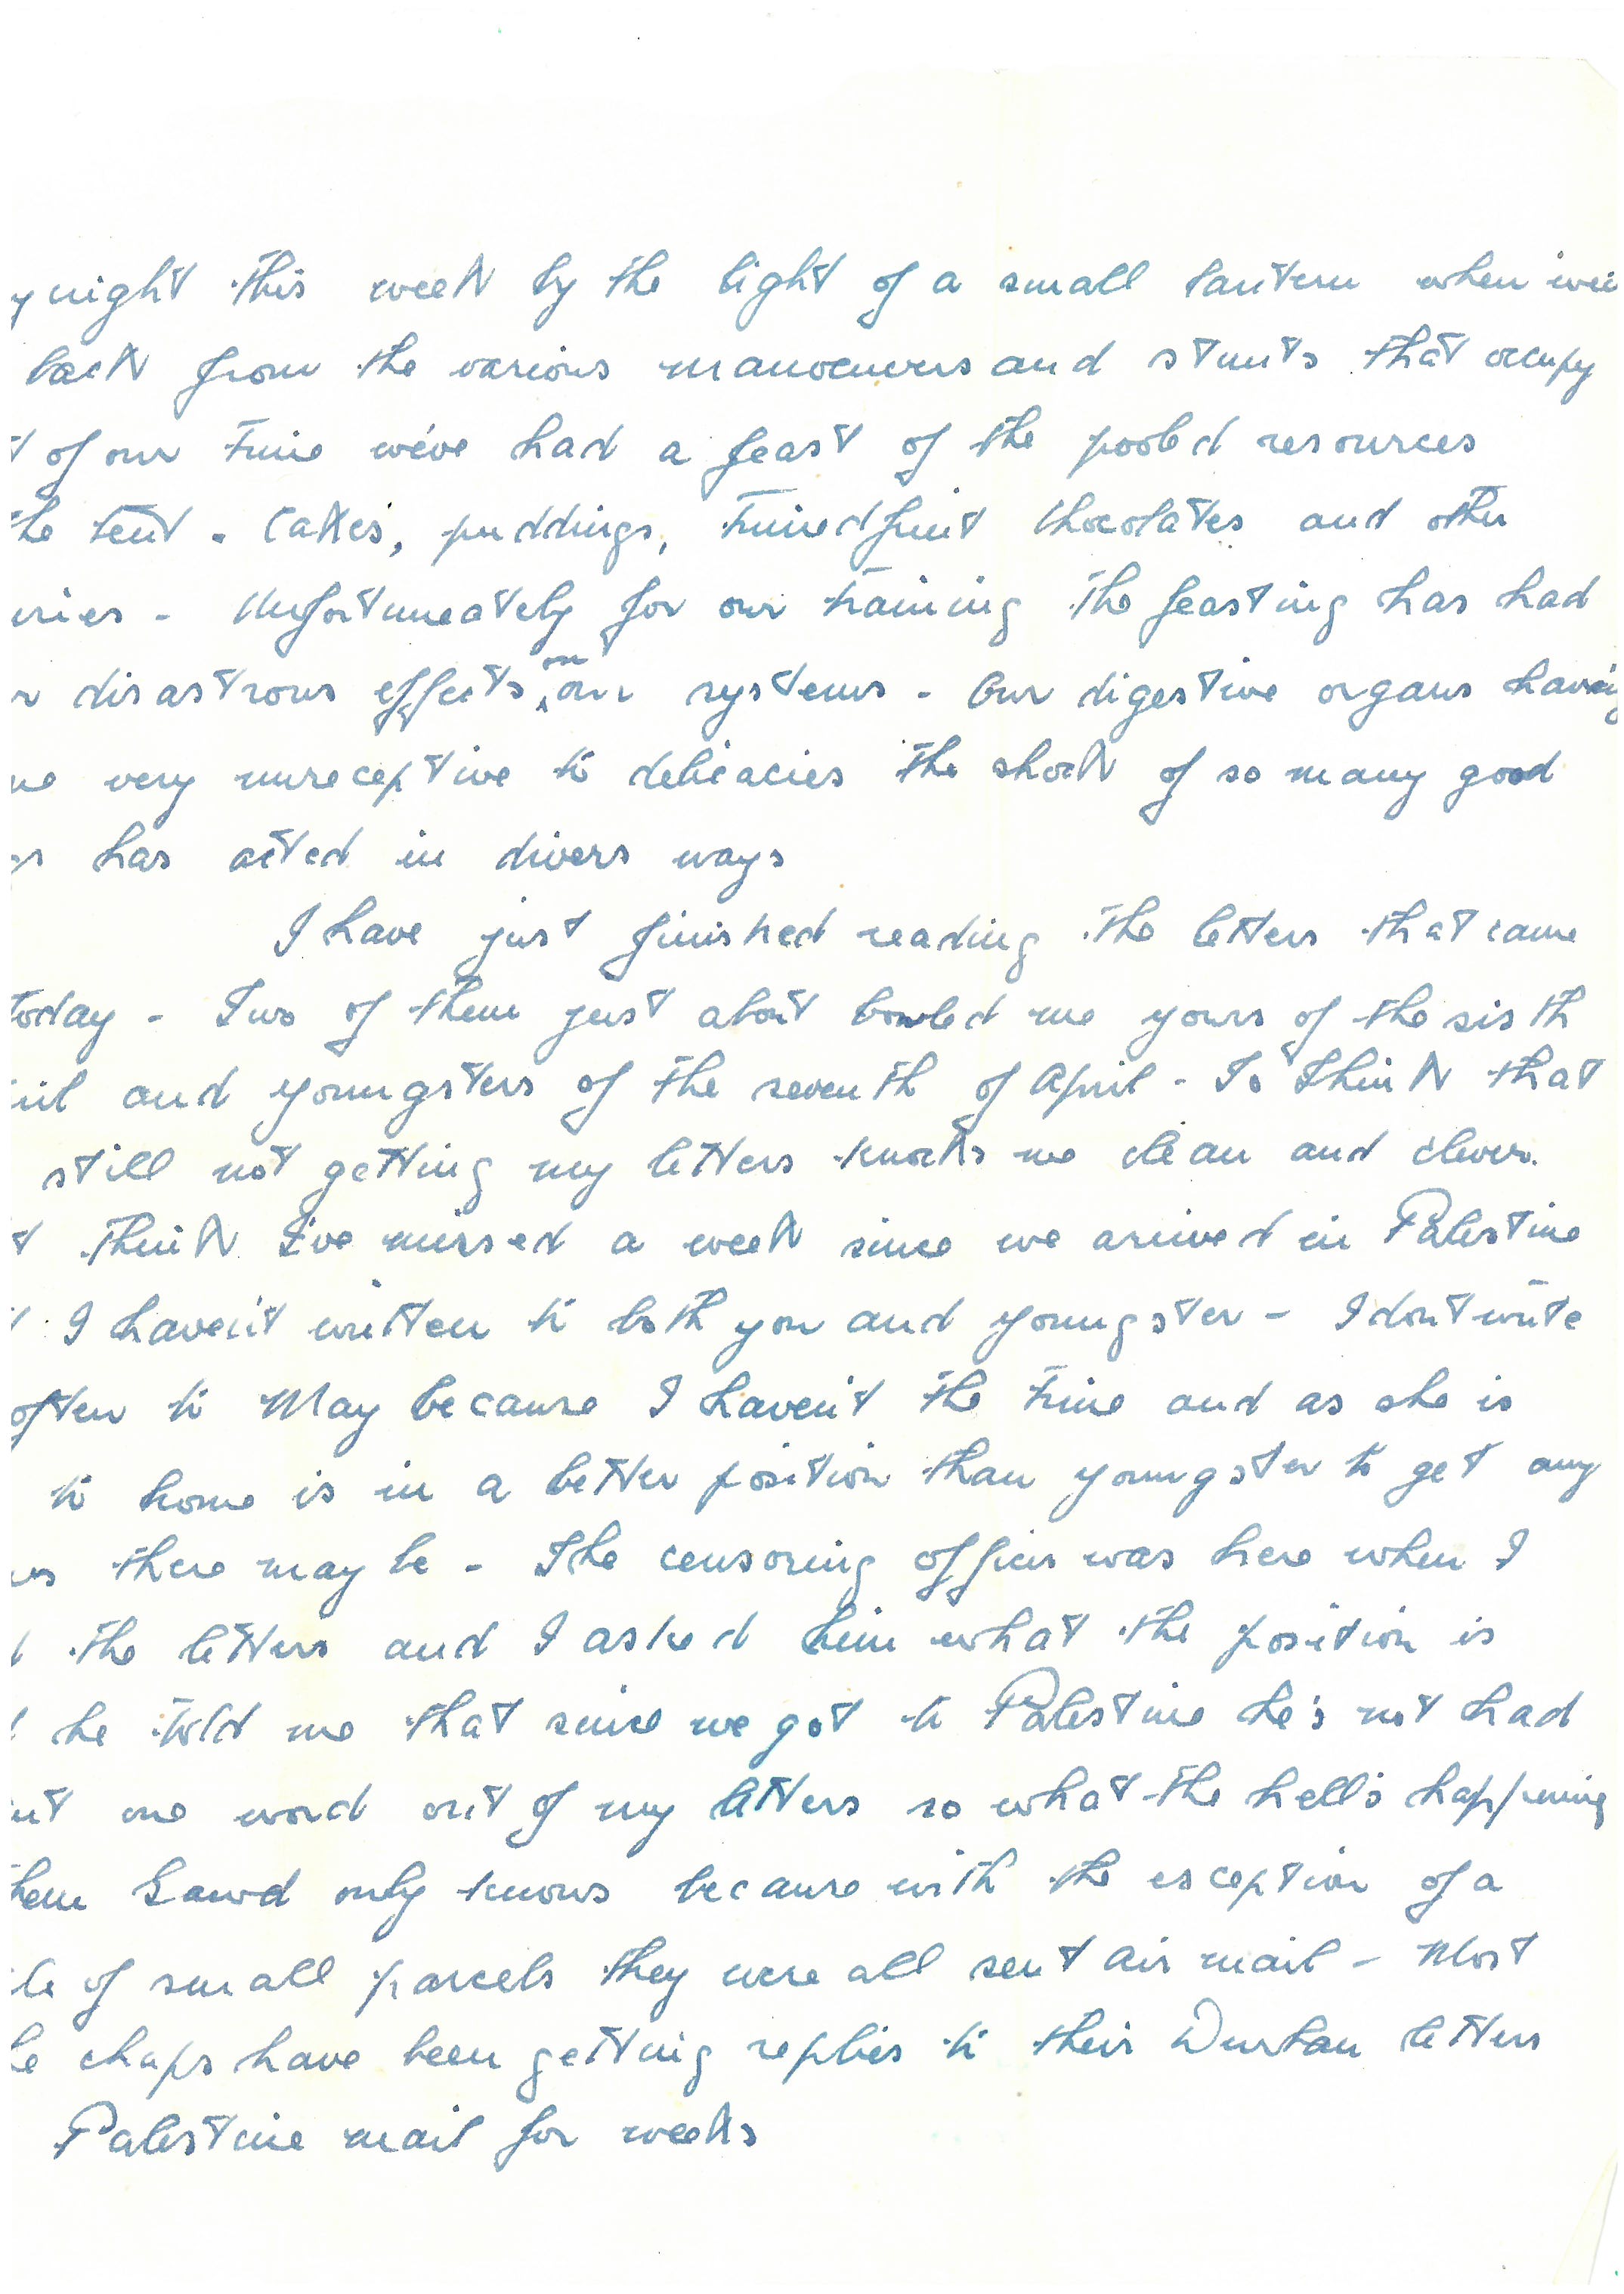 y night this week by the light of a small lantern when we
back from the various manoeuvers and stunts that occupy
t of our time we've had a feast of the pooled resources
the tent - Cakes, puddings, tinned fruit chocolates and other
uries - Unfortuneately for our training the feasting has had
r disastrous effects on our systems - Our digestive organs having
me very unreceptive to delicacies the shock of so many good
gs has acted in divers ways
I have just finished reading the letters that came
today - Two of them just about bowled me yours of the sixth
ril and youngsters of the seventh of April - To think that
still not getting my letters knocks me clean and clever.
t think I've missed a week since we arrived in Palestine
t I haven't written to both you and youngster - I dont write
often to May because I haven't the time and as she is
to home is in a better position than youngster to get any
ws there may be - The censoring officer was here when I
d the letters and I asked him what the position is
d he told me that since we got to Palestine he's not had
ut one word out of my letters so what the hell's happening
hem Gawd only knows because with the exception of a
le of small parcels they were all sent air mail - Most
he chaps have been getting replies to their Durban letters
Palestine mail for weeks